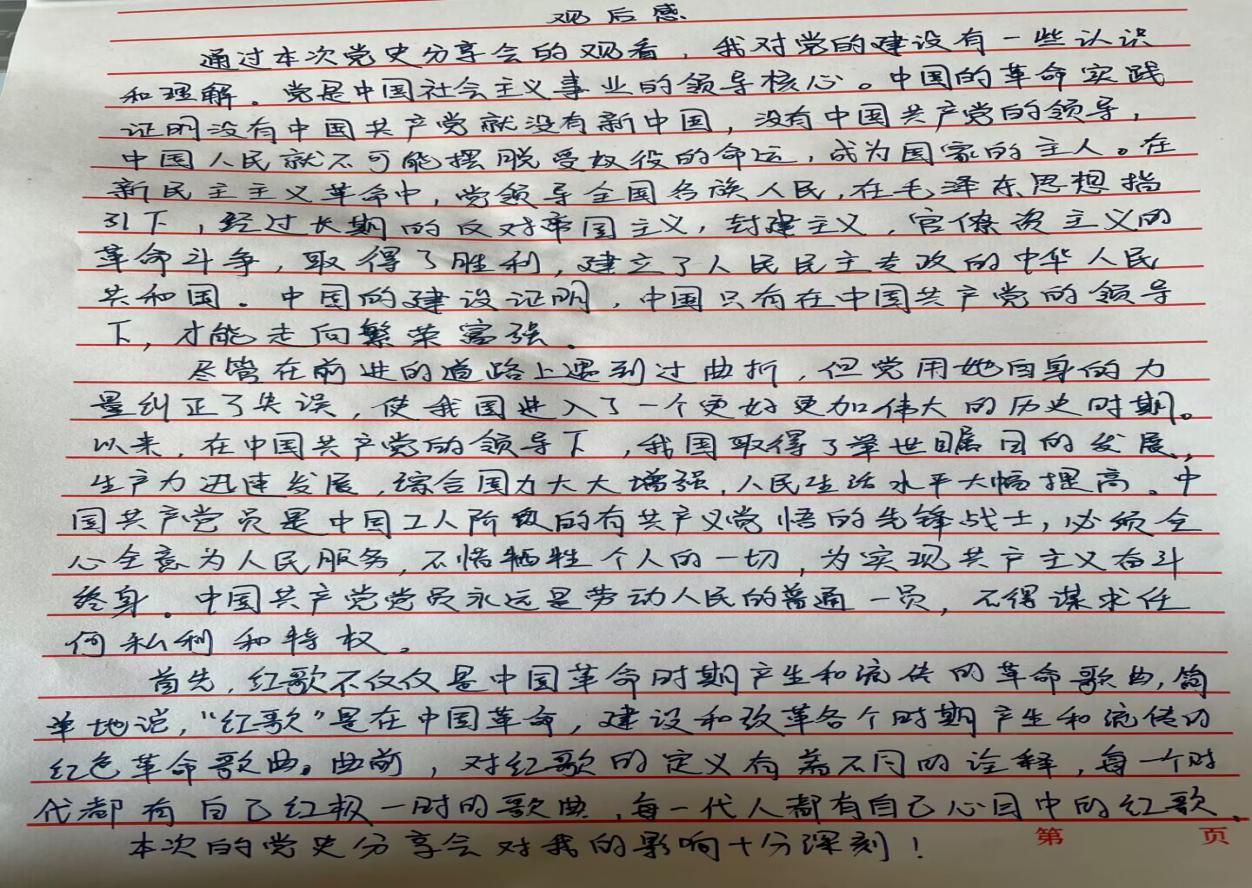 观后感
通过本次党史分享会的观看，我对党的建设有一些认识
和理解。党是中国社会主义事业的领导核心。中国的革命实践
证明没有中国共产党就没有新中国，没有中国共产党的领导，
中国人民就不可能摆脱受奴役的命运，成为国家的主人。在
新民主主义革命中，党领导全国各族人民，在毛泽东思想指
引下，经过长期的反对帝国主义，封建主义，官僚资主义的
革命斗争，取得了胜利，建立了人民民主专政的中华人民
共和国。中国的建设证明，中国只有在中国共产党的领导
下，才能走向繁荣富强。
尽管在前进的道路上遇到过曲折，但党用她自身的力
量纠正了失误，使我国进入了一个更好更加伟大的历史时期。
以来，在中国共产党的领导下，我国取得了举世瞩目的发展，
生产力迅速发展，综合国力大大增强，人民生活水平大幅提高。中
国共产党员是中国工人阶级的有共产义党悟的先锋战士，必须全
心全意为人民服务，不惜牺牲个人的一切，为实现共产主义奋斗
终身。中国共产党党员永远是劳动人民的普通一员，不得谋求任
何私利和特权。
首先，红歌不仅仅是中国革命时期产生和流传的革命歌曲，简
单地说，“红歌”是在中国革命，建设和改革各个时期产生和流传的
红色革命歌曲。曲前，对红歌的定义有着不同的诠释，每一个时
代都有自己红极一时的歌曲，每一代人都有自己心目中的红歌。
本次的党史分享会对我的影响十分深刻！
第 页